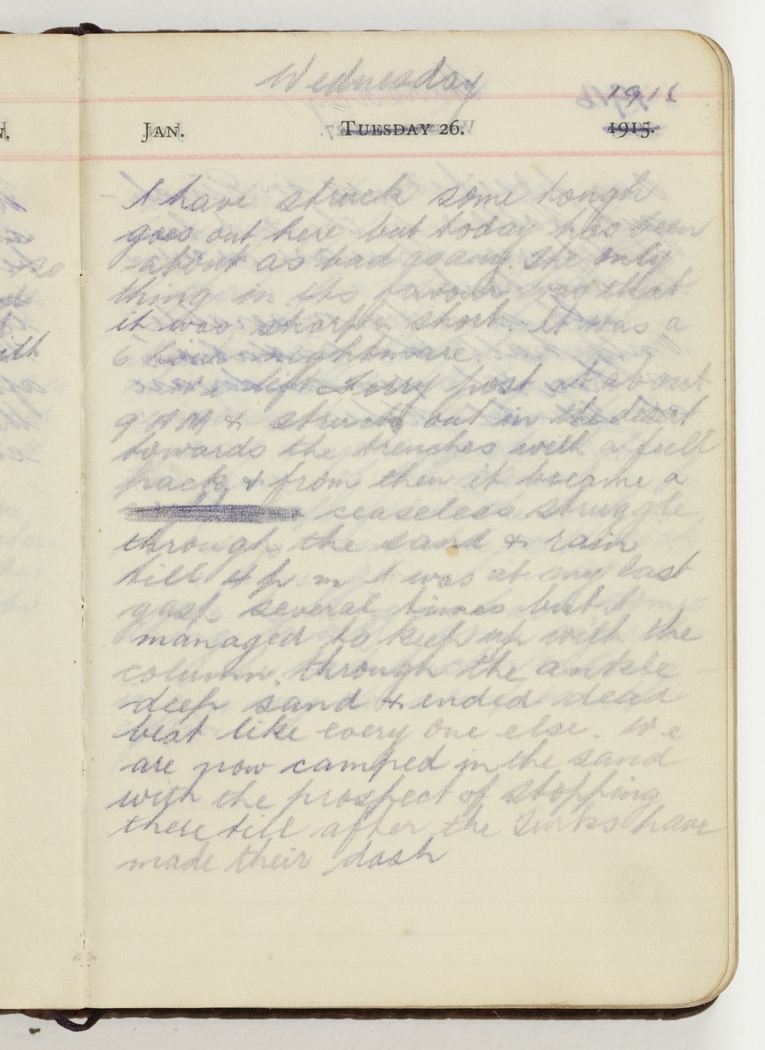 Wednesday
1916
JAN. TUESDAY 26. 1915.
I have struck some tough
goes out here but today has been
about as bad as any. The only
thing in its favour was that
it was sharp & short. It was a
6 nightmare.
We left post at about
9 AM & struck out in the desert
towards the trenches with a full
pack & from then it became a
ceaseless struggle
through the sand & rain
till 4 p m I was at my last
gasp several times but I
managed to keep up with the
column through the ankle
deep sand & ended dead
beat like every one else. We
are now camped in the sand
with the prospect of stopping
there till after the Turks have
made their dash